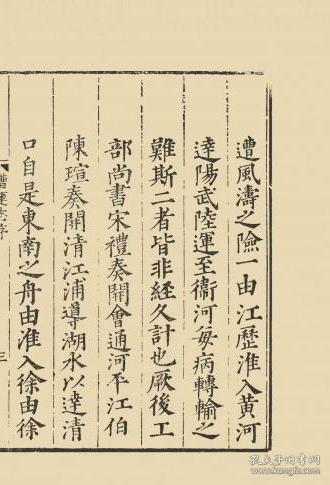 遭風濤之險一由江歷淮入黄河
逹陽武陸運至衞河每病轉輸之
難斯二者皆非經久計也厥後工
部尚書宋禮奏開會通河平江伯
陳瑄奏開清江浦導湖水以達清
口自是東南之舟由淮入徐由徐
漕運志序
三
孔夫子旧书网